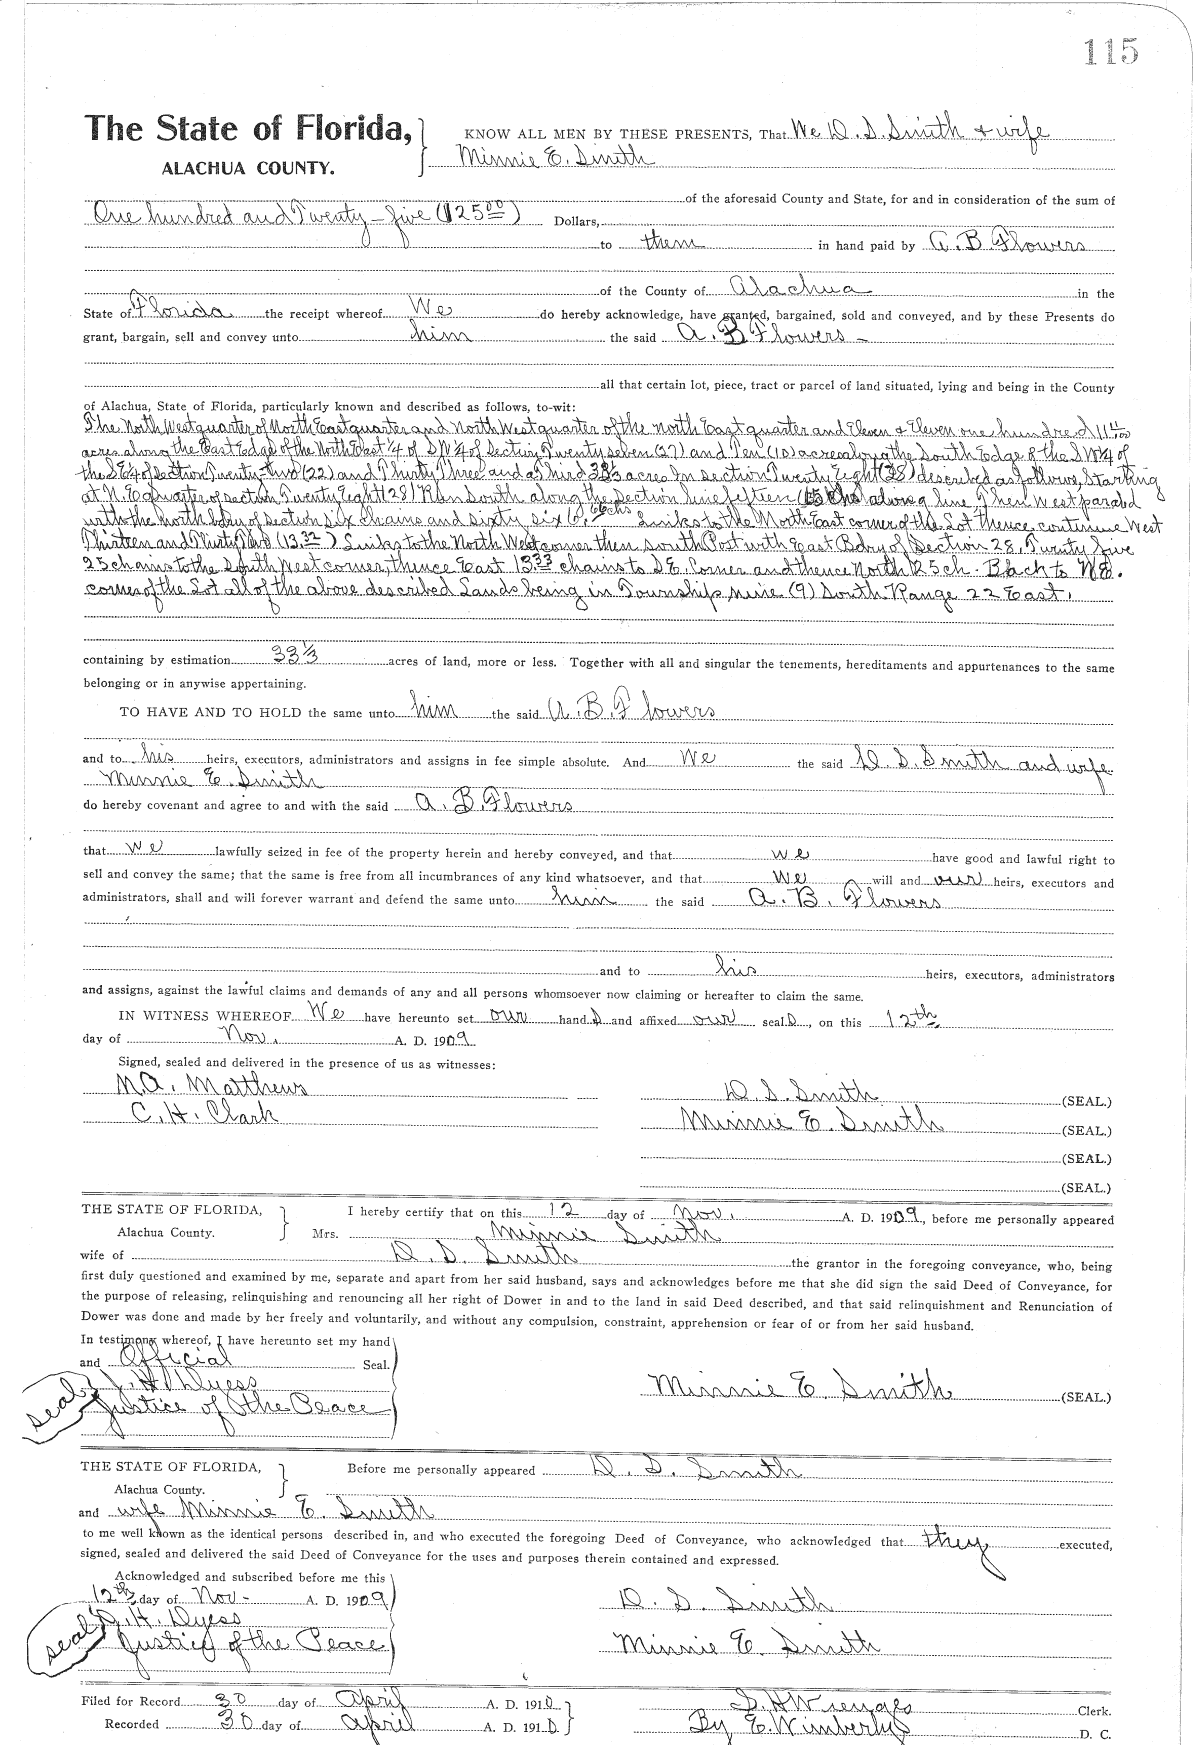 115
The State of Florida,
ALACHUA COUNTY.
KNOW ALL MEN BY THESE PRESENTS, That We D. S. Smith & wife
Minnie E. Smith
of the aforesaid County and State, for and in consideration of the sum of
One hundred and Twenty-five ($125 00) Dollars,
to them in hand paid by A. B. Flowers
of the County of Alachua in the
State of Florida the receipt whereof We do hereby acknowledge, have granted, bargained, sold and conveyed, and by these Presents do
grant, bargain, sell and convey unto him the said A. B Flowers -
all that certain lot, piece, tract or parcel of land situated, lying and being in the County
of Alachua, State of Florida, particularly known and described as follows, to-wit:
The North West quarter of North East quarter and North West quarter of the north East quarter and Eleven & Eleven one hundred
acres along the East Edge of the North East 1/4 of SW 1/4 of Section Twenty seven (27) and Ten (10) acres along the South Edge of the SW 1/4 of
the S.E 1/4 of section Twenty-two (22) and Thirty Three and a Third 33 1/3 acres In section Twenty Eight (28) described as follows, Starting
at N. E quarter of section Twenty Eight (28) Run South along the section line fifteen (15) chs along line Then West
with the north bdry of section six chains and sixty six Links to the North East corner of the Lot thence continue West
Thirteen and Links to the North West corner then south with East Bdry of Section 28, Twenty five
25 chains to the South West corner, thence East 13.33 chains to S E. Corner and thence North 25 ch. Back to N E.
corner of the Lot all of the above described Lands being in Township nine (9) South Range 22 East.
containing by estimation 33 1/3 acres of land, more or less. Together with all and singular the tenements, hereditaments and appurtenances to the same
belonging or in anywise appertaining.
TO HAVE AND TO HOLD the same unto him the said A. B. Flowers
and to his heirs, executors, administrators and assigns in fee simple absolute. And We the said D. S. Smith and wife
Minnie E. Smith
do hereby covenant and agree to and with the said A. B. Flowers
that we lawfully seized in fee of the property herein and hereby conveyed, and that we have good and lawful right to
sell and convey the same; that the same is free from all incumbrances of any kind whatsoever, and that we will and our heirs, executors and
administrators, shall and will forever warrant and defend the same unto him the said A. B. Flowers
and to his heirs, executors, administrators
and assigns, against the lawful claims and demands of any and all persons whomsoever now claiming or hereafter to claim the same.
IN WITNESS WHEREOF We have hereunto set our hand s and affixed our seal s, on this 12th
day of Nov. A. D. 1909
Signed, sealed and delivered in the presence of us as witnesses:
M. A. Matthews
C. H. Clark
D. S. Smith (SEAL.)
Minnie E. Smith (SEAL.)
(SEAL.)
(SEAL.)
THE STATE OF FLORIDA,
Alachua County.
I hereby certify that on this 12 day of Nov. A. D. 1909, before me personally appeared
Mrs. Minnie Smith
wife of D. S. Smith the grantor in the foregoing conveyance, who, being
first duly questioned and examined by me, separate and apart from her said husband, says and acknowledges before me that she did sign the said Deed of Conveyance, for
the purpose of releasing, relinquishing and renouncing all her right of Dower in and to the land in said Deed described, and that said relinquishment and Renunciation of
Dower was done and made by her freely and voluntarily, and without any compulsion, constraint, apprehension or fear of or from her said husband.
In testimony whereof, I have hereunto set my hand
and Official Seal.
J. H Dyess
Justice of the Peace
seal
Minnie E Smith (SEAL.)
THE STATE OF FLORIDA,
Alachua County.
Before me personally appeared D. S. Smith
and wife Minnie E. Smith
to me well known as the identical persons described in, and who executed the foregoing Deed of Conveyance, who acknowledged that they executed,
signed, sealed and delivered the said Deed of Conveyance for the uses and purposes therein contained and expressed.
Acknowledged and subscribed before me this
12th day of Nov- A. D. 1909
J. H. Dyess
Justice of the Peace
seal
D. S. Smith
Minnie E. Smith
Filed for Record 30 day of April A. D. 1910
Recorded 30 day of April A. D. 1910
S. H Wienges Clerk.
By E. Wimberly D. C.